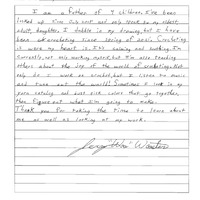 I am a Father of 4 children. I've been
locked up since July 2005 and only speak to my oldest
adult, daughter. I dabble in my drawing, but I have
been crocheting since Spring of 2016. Crocheting
is were my heart is. It's calming and soothing. I'm
currently, not only working myself, but I'm also teaching
others about the joy of the world of crocheting. Not
only do I work on crochet, but I listen to music
and tune out the world! Sometimes I look in my
yarn catalog and just pick colors that go together,
then figure out what I'm going to make.
Thank you for taking the time to learn about
me as well as looking at my work.